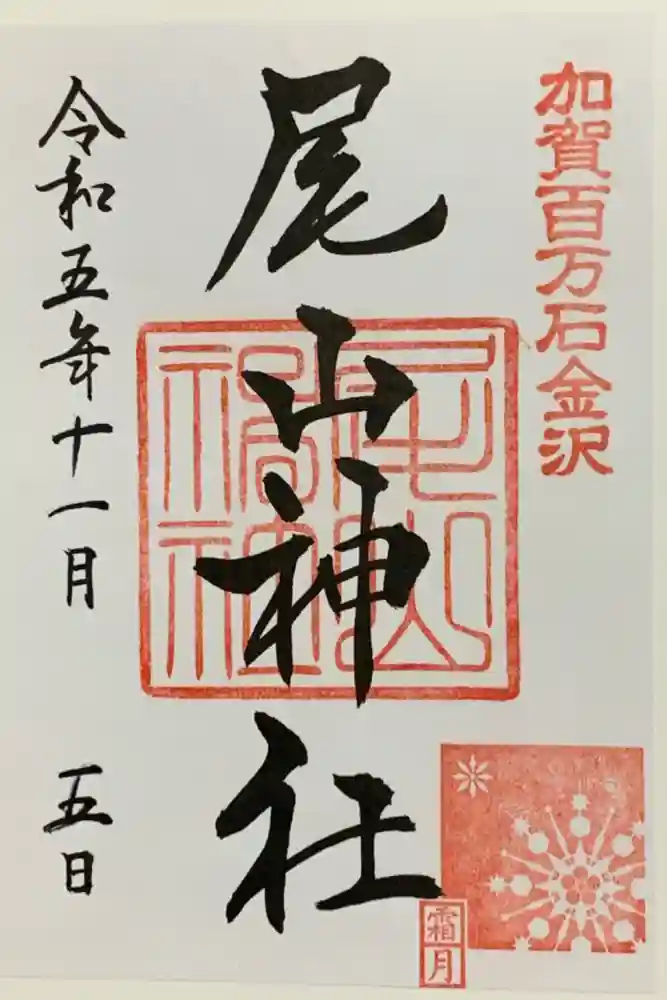 加賀百万石金沢
尾山神社
令和五年十一月 五日
霜月